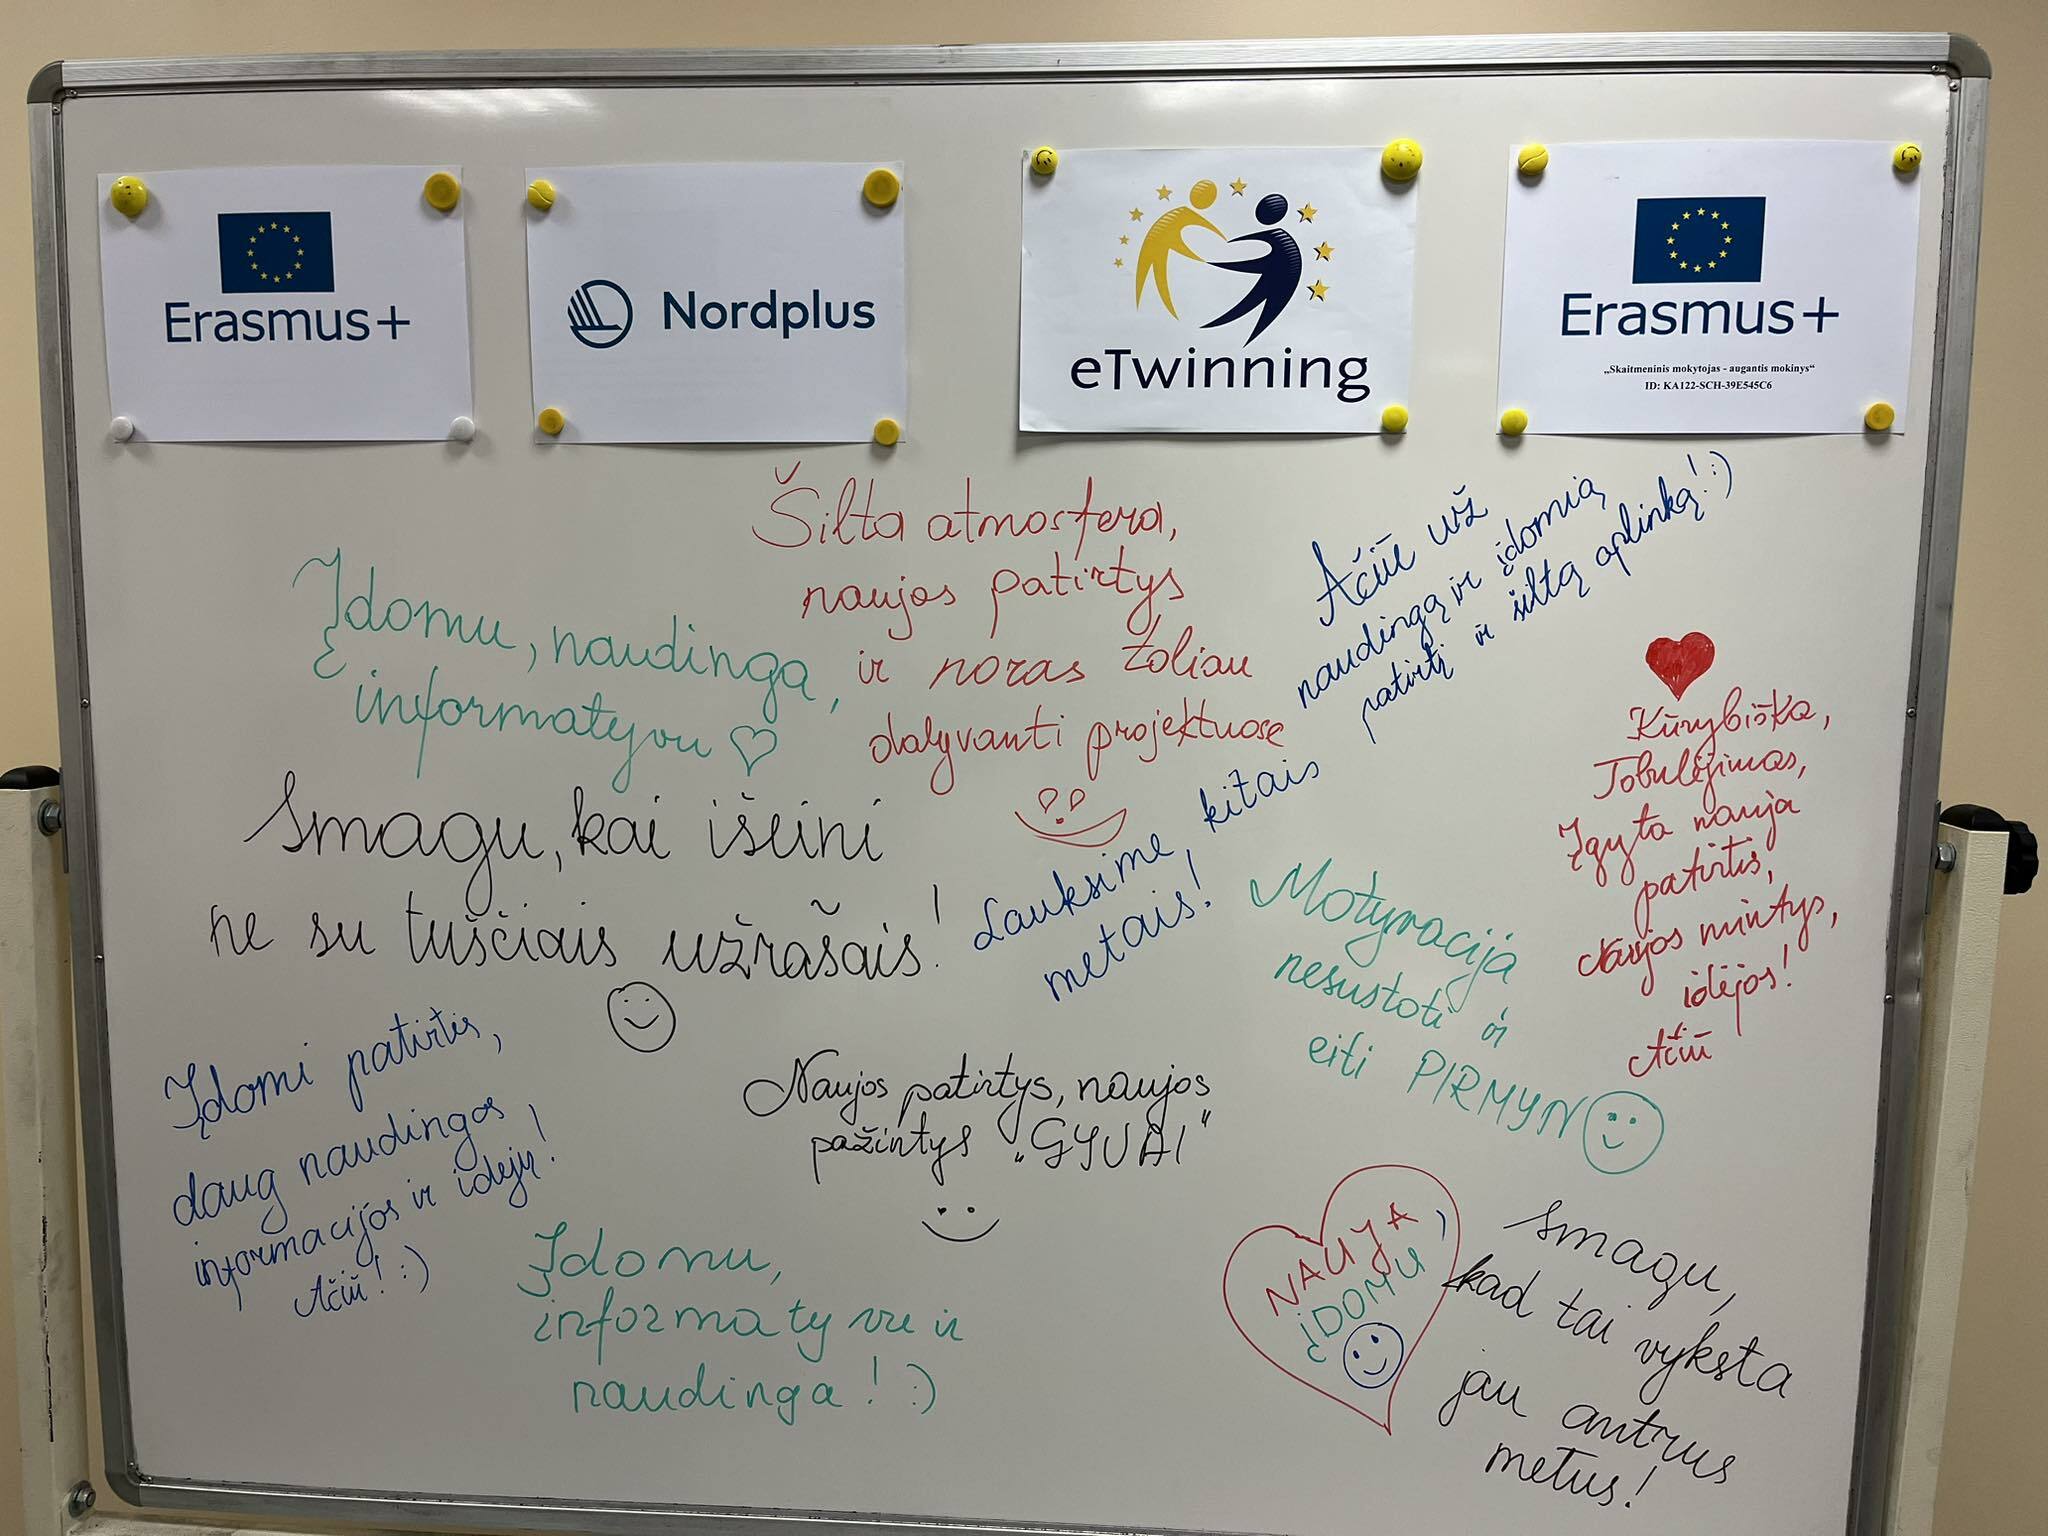 Erasmus+
Nordplus
eTwinning
Erasmus+
„Skaitmeninis mokytojas - augantis mokinys“
ID: KA122-SCH-39E545C6
Šilta atmosfera,
naujos patirtys
ir noras toliau
dalyvanti projektuose
Ačiū už
naudingą ir įdomią
patirtį ir šiltą aplinką! :)
Įdomu, naudinga,
informatyvu
Kūrybiška,
Tobulėjimas,
Įgyta nauja
patirtis,
Naujos mintys,
idėjos!
Ačiū
Smagu, kai išeini
ne su tuščiais užrašais!
Lauksime, kitais
metais!
Motyvacija
nesustoti ir
eiti PIRMYN
Įdomi patirtis,
daug naudingos
informacijos ir idėjų!
Ačiū! :)
Naujos patirtys, naujos
pažintys „GYVAI“
Įdomu,
informatyvu ir
naudinga! :)
NAUJA,
įDOMU
Smagu,
kad tai vyksta
jau antrus
metus!